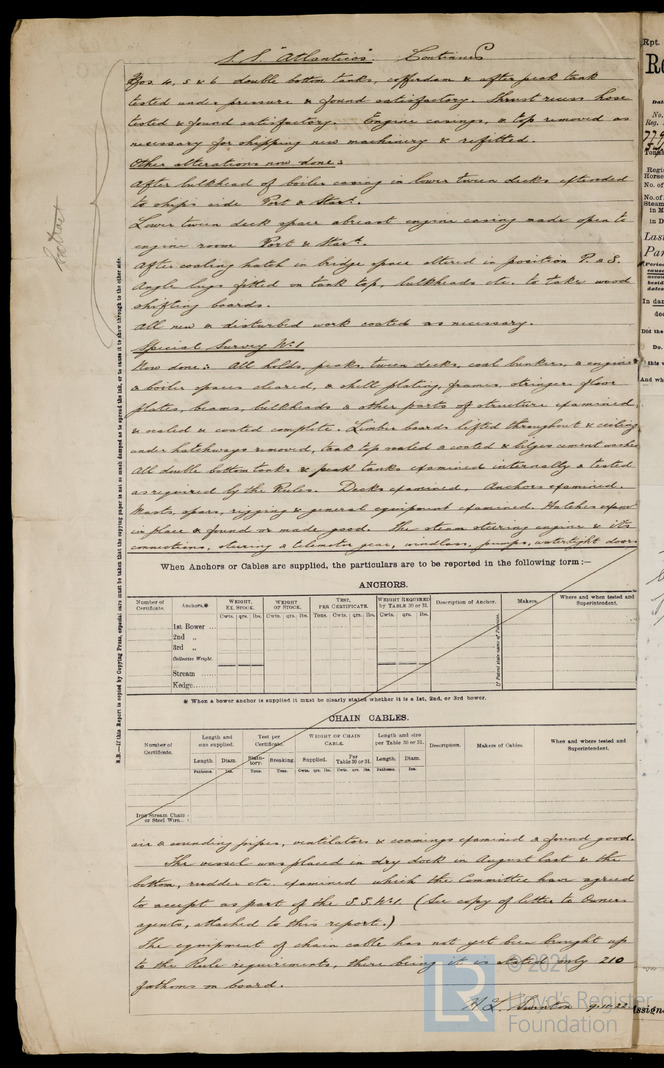 S.S. "Atlanticos". Continued
Nos 4, 5 & 6 double bottom tanks, cofferdam & after peak tank
tested under pressure & found satisfactory. Thrust recess hose
tested & found satisfactory. Engine casings, & top removed as
necessary for shipping new machinery & refitted.
Other alterations now done:
After bulkhead of boiler casing in lower tween decks extended
to ships side Port & Starb.
Lower tween deck space abreast engine casing made open to
engine room Port & Starb.
After coaling hatch in bridge space altered in position P. & S.
Angle lugs fitted on tank top, bulkheads etc. to take wood
shifting boards.
All new & disturbed work coated as necessary.
Special Survey No. 1
Now done: All holds, peaks, tween decks, coal bunkers, & engine
& boiler spaces cleared, & shell plating, frames, stringers, floor
plates, beams, bulkheads & other parts of structure examined
& scaled & coated complete. Limber boards lifted throughout & ceiling
under hatchways removed, tank top scaled & coated & bilges cement washed
All double bottom tanks & peak tanks examined internally & tested
as required by the Rules. Decks examined. Anchors examined.
Masts, spars, rigging & general equipment examined. Hatches
in place & found or made good. The steam steering engine & its
connections, steering & telemotor gear, windlass, pumps, watertight doors
N.B.—If this Report is copied by Copying Press, especial care must be taken that the copying paper is not so much damped as to spread the ink, or to cause it to show through to the other side.
When Anchors or Cables are supplied, the particulars are to be reported in the following form :—
ANCHORS.
Number of Certificate. Anchors.* WEIGHT, EX. STOCK. WEIGHT OF STOCK. TEST, PER CERTIFICATE. WEIGHT REQUIRED by TABLE 30 or 31. Description of Anchor. Makers. Where and when tested and Superintendent.
Cwts. qrs. lbs. Cwts. qrs. lbs. Tons. Cwts. qrs. lbs. Cwts. qrs. lbs.
1st Bower ...
2nd „
3rd „
Collective Weight.
Stream ......
Kedge.......
If Patent state name of Patentee.
* When a bower anchor is supplied it must be clearly stated whether it is a 1st, 2nd, or 3rd bower.
CHAIN CABLES.
Number of Certificate. Length and size supplied. Test per Certificate. WEIGHT OF CHAIN CABLE. Length and size per Table 30 or 31. Description. Makers of Cables. When and where tested and Superintendent.
Length. Diam. Statutory. Breaking. Supplied. Per Table 30 or 31. Length. Diam.
Fathoms. Ins. Tons. Tons. Cwts. qrs. lbs. Cwts. qrs. lbs. Fathoms. Ins.
Iron Stream Chain or Steel Wire...
air & sounding pipes, ventilators & coamings examined & found good.
The vessel was placed in dry dock in August last & the
bottom, rudder etc. examined which the Committee have agreed
to accept as part of the S.S. No. 1. (See copy of letter to Owners
agents, attached to this report.)
The equipment of chain cable has not yet been brought up
to the Rule requirements, there being it is stated only 210
fathoms on board.
LR
© 2021
Lloyd's Register
Foundation